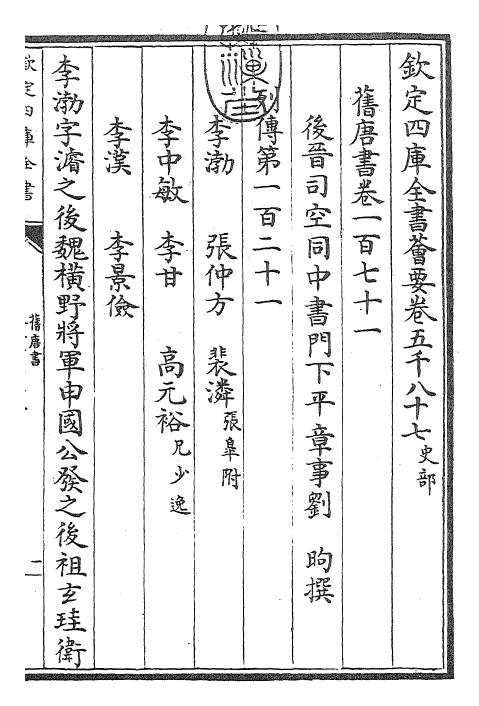 欽定四庫全書薈要卷五千八十七史部
舊唐書卷一百七十一
後晉司空同中書門下平章事劉昫撰
列傳第一百二十一
李渤 張仲方 裴潾張皐附
李中敏 李甘 高元裕兄少逸
李漢 李景儉
李渤字濬之後魏橫野將軍申國公發之後祖玄珪衛
欽定四庫全書
舊唐書